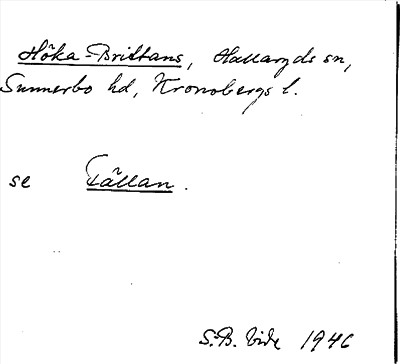 Höka-Brittans, Hallaryds sn,
Sunnerbo hd, Kronobergs l.
se Tällan.
S.B. Vide 1946